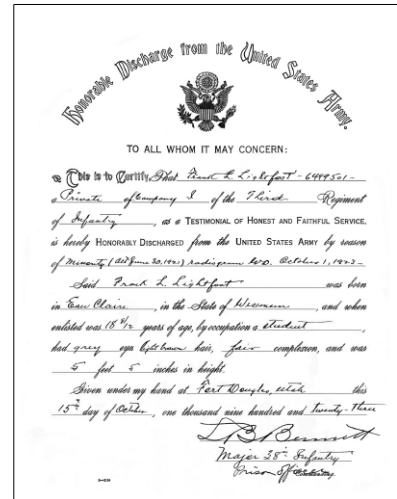 Honorable Discharge from the United States Army.
TO ALL WHOM IT MAY CONCERN:
This is to Certify, That Frank L. Lightfoot - 6499501 -
a Private of Company I of the Third Regiment
of Infantry as a TESTIMONIAL OF HONEST AND FAITHFUL SERVICE,
is hereby HONORABLY DISCHARGED from the UNITED STATES ARMY by reason
of Minority (Act June 30, 1921) radiogram W.D. October 1, 1923 -
Said Frank L. Lightfoot was born
in Eau Claire, in the State of Wisconsin, and when
enlisted was 18 years of age, by occupation a student,
had grey eyes light brown hair, fair complexion, and was
5 feet 5 inches in height.
Given under my hand at Fort Douglas, Utah this
15th day of October, one thousand nine hundred and twenty-three
Bennett
Major 38th Infantry
Prison